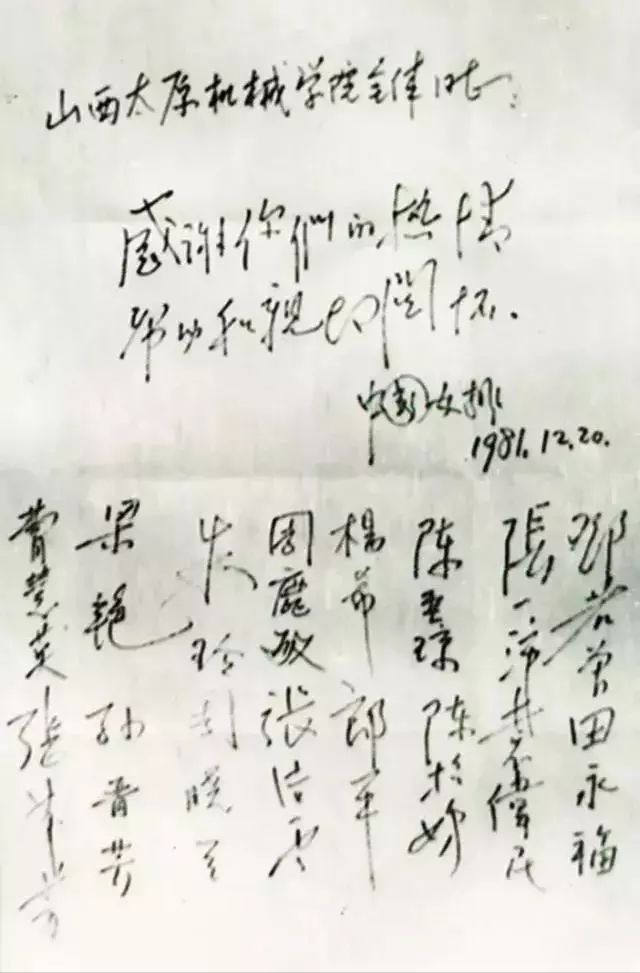 山西太原机械学院全体同志:
感谢你們的热情
帮助和親切関怀.
中國女排
1981.12.20.
鄧若曾 田永福
張一沛 袁偉民
陈亚琼 陈招娣
楊希 郎平
周鹿敏 張洁云
朱玲 周晓兰
梁艳 孙晋芳
曹慧英 張蓉芳